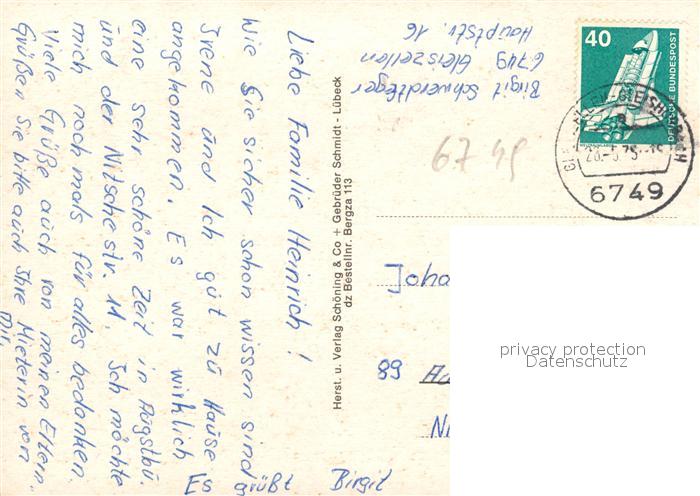 Liebe Familie Heinrich!
Wie Sie sicher schon wissen sind
Irene und Ich gut zu Hause
angekommen. Es war wirklich
eine sehr schöne Zeit in Augsbu.
und der Nitschestr. 11. Ich möchte
mich noch mals für alles bedanken.
Viele Grüße auch von meinen Eltern.
Grüßen Sie bitte auch Ihre Mieterin von
mir.
Es grüßt Birgit
Birgit Schwerdtfeger
6749 Gleiszellen
Hauptstr. 16
Herst. u. Verlag Schöning & Co + Gebrüder Schmidt - Lübeck
dz Bestellnr. Bergza 113
40
DEUTSCHE BUNDESPOST
6749
67 49
Joha
89
privacy protection
Datenschutz